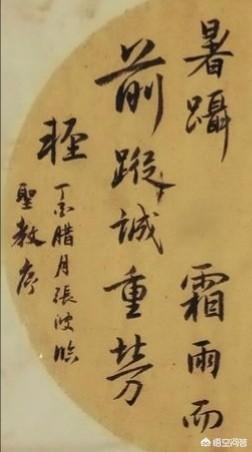 暑躡 霜雨而
前蹤誠重勞
輕
丁酉腊月張臨
聖教序
悟空问答